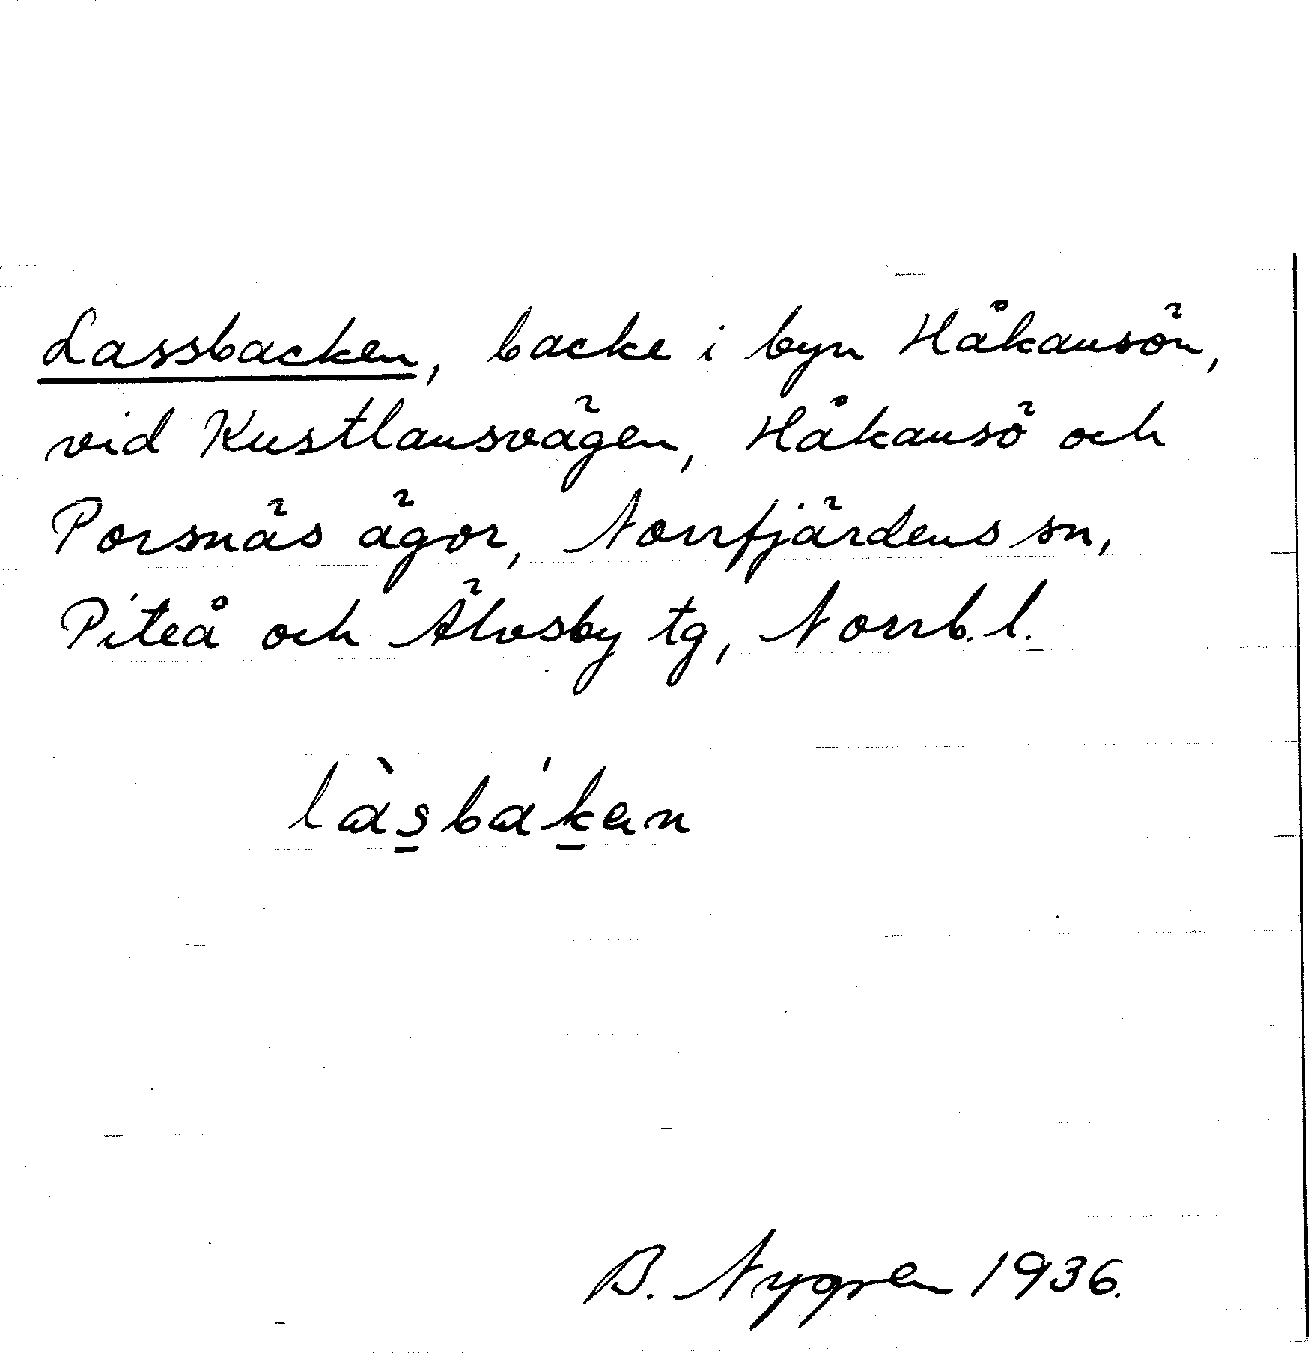 Lassbacken, backe i byn Håkansön,
vid Kustlansvägen, Håkansö och
Porsnäs ägor, Norrfjärdens sn,
Piteå och Älvsby tg, Norrb. l.
làs̲bák̲en
B. Nygren 1936.